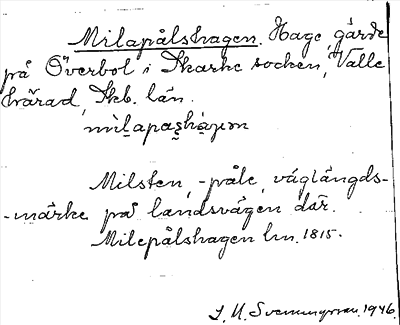 Milapålshagen. Hage, gärde
på Överbol i Skarke socken, Valle
härad, Skb. län.
mìlapas̠hàgɐn
Milsten, -påle, väglängds-
-märke på landsvägen där.
Milepålshagen lm. 1815.
S. M. Svenungsson. 1946.